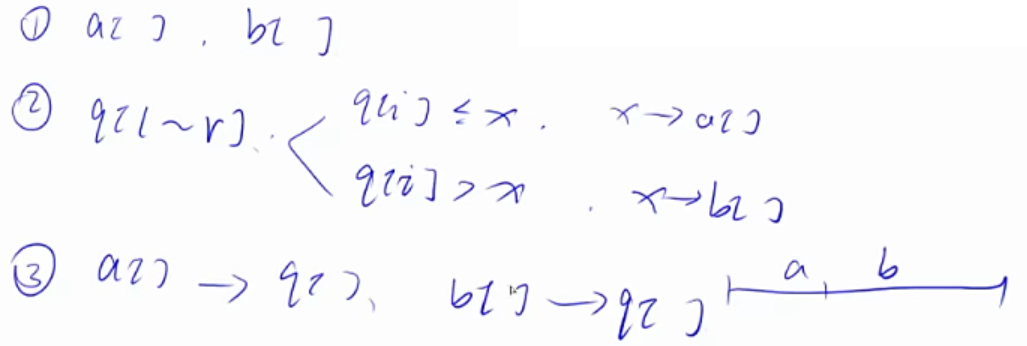 ① a[ ], b[ ]
② q[l~r].
q[i] ≤ x. x→a[ ]
q[i] > x. x→b[ ]
③ a[ ] → q[ ], b[ ] → q[ ] a b